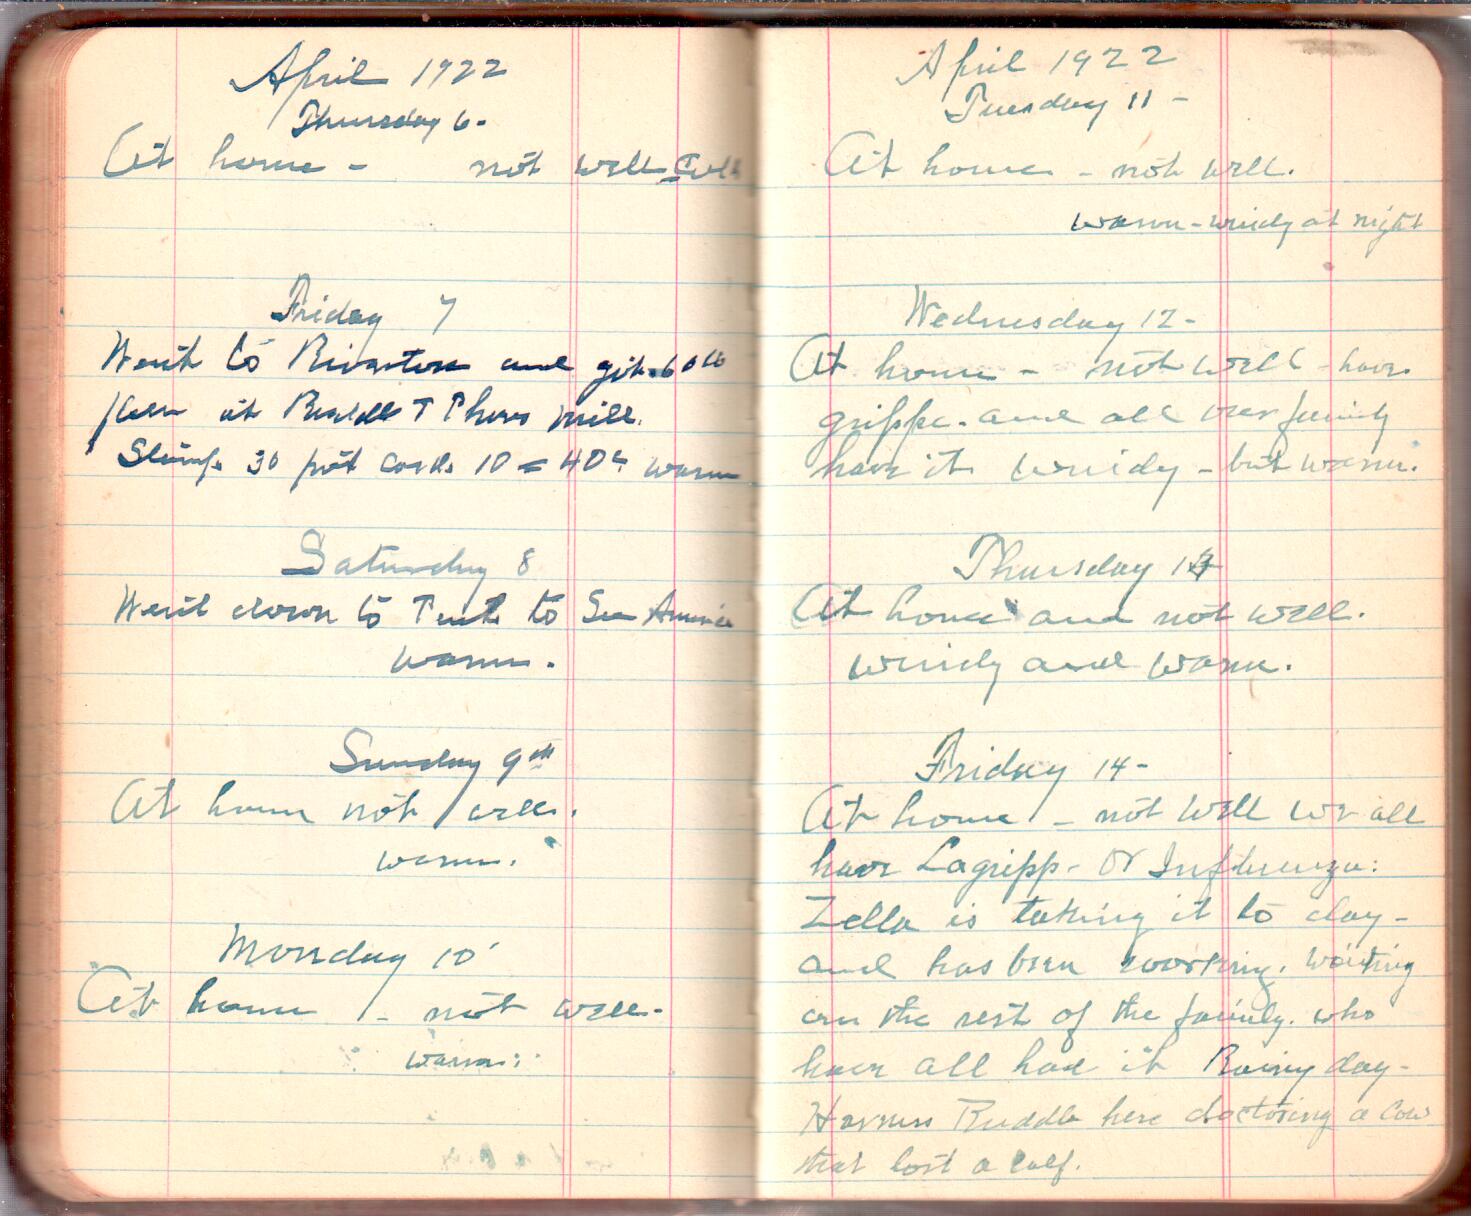 April 1922
Thursday 6-
At home - not well Cold
Friday 7
Went to Riverton and got 60 lb
at Ruddle T Thos mill.
Stamps 30 post cards 10 = 40¢ warm
Saturday 8
Went down to Tents to See America
warm.
Sunday 9th
At home not well.
warm.
Monday 10
At home - not well-
warm:
April 1922
Tuesday 11 -
At home - not well.
warm - windy at night
Wednesday 12-
At home - not well - have
grippe. and all our family
have it windy - but warm.
Thursday 13
At home and not well.
windy and warm.
Friday 14-
At home - not well we all
have Lagripp- Or Influenza:
Zella is taking it to day-
and has been working, waiting
on the rest of the family. who
have all had it Rainy day-
Harness Ruddle here doctoring a Cow
that lost a calf.